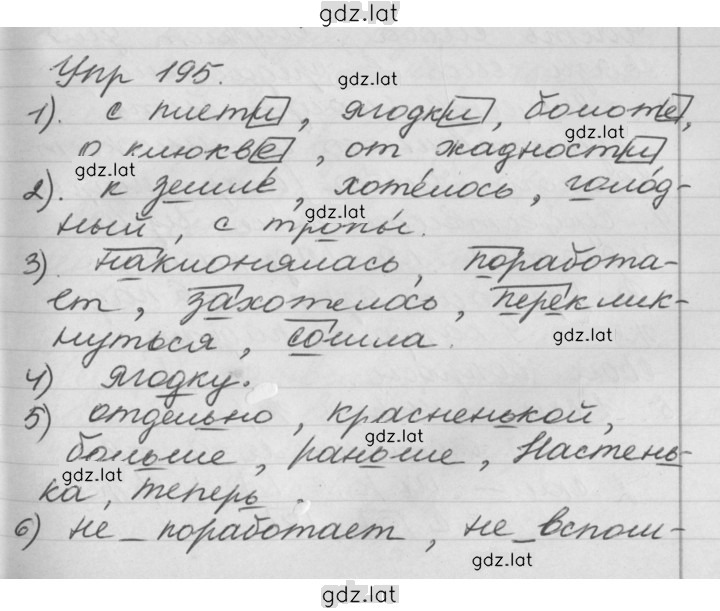 gdz.lat
Упр 195.
gdz.lat
1). с плети, ягодки, болоте,
gdz.lat
о клюкве, от жадности
gdz.lat
2). к земле, хотелось, голод-
gdz.lat
ный, с тропы.
3). наклонялась, поработа-
ет, захотелось, переклик-
gdz.lat
нуться, сошла.
gdz.lat
4) ягодку.
5) отдельно, красненькой,
gdz.lat
больше, раньше, Настень-
gdz.lat
ка, теперь.
6) не_поработает, не_вспом-
gdz.lat
gdz.lat